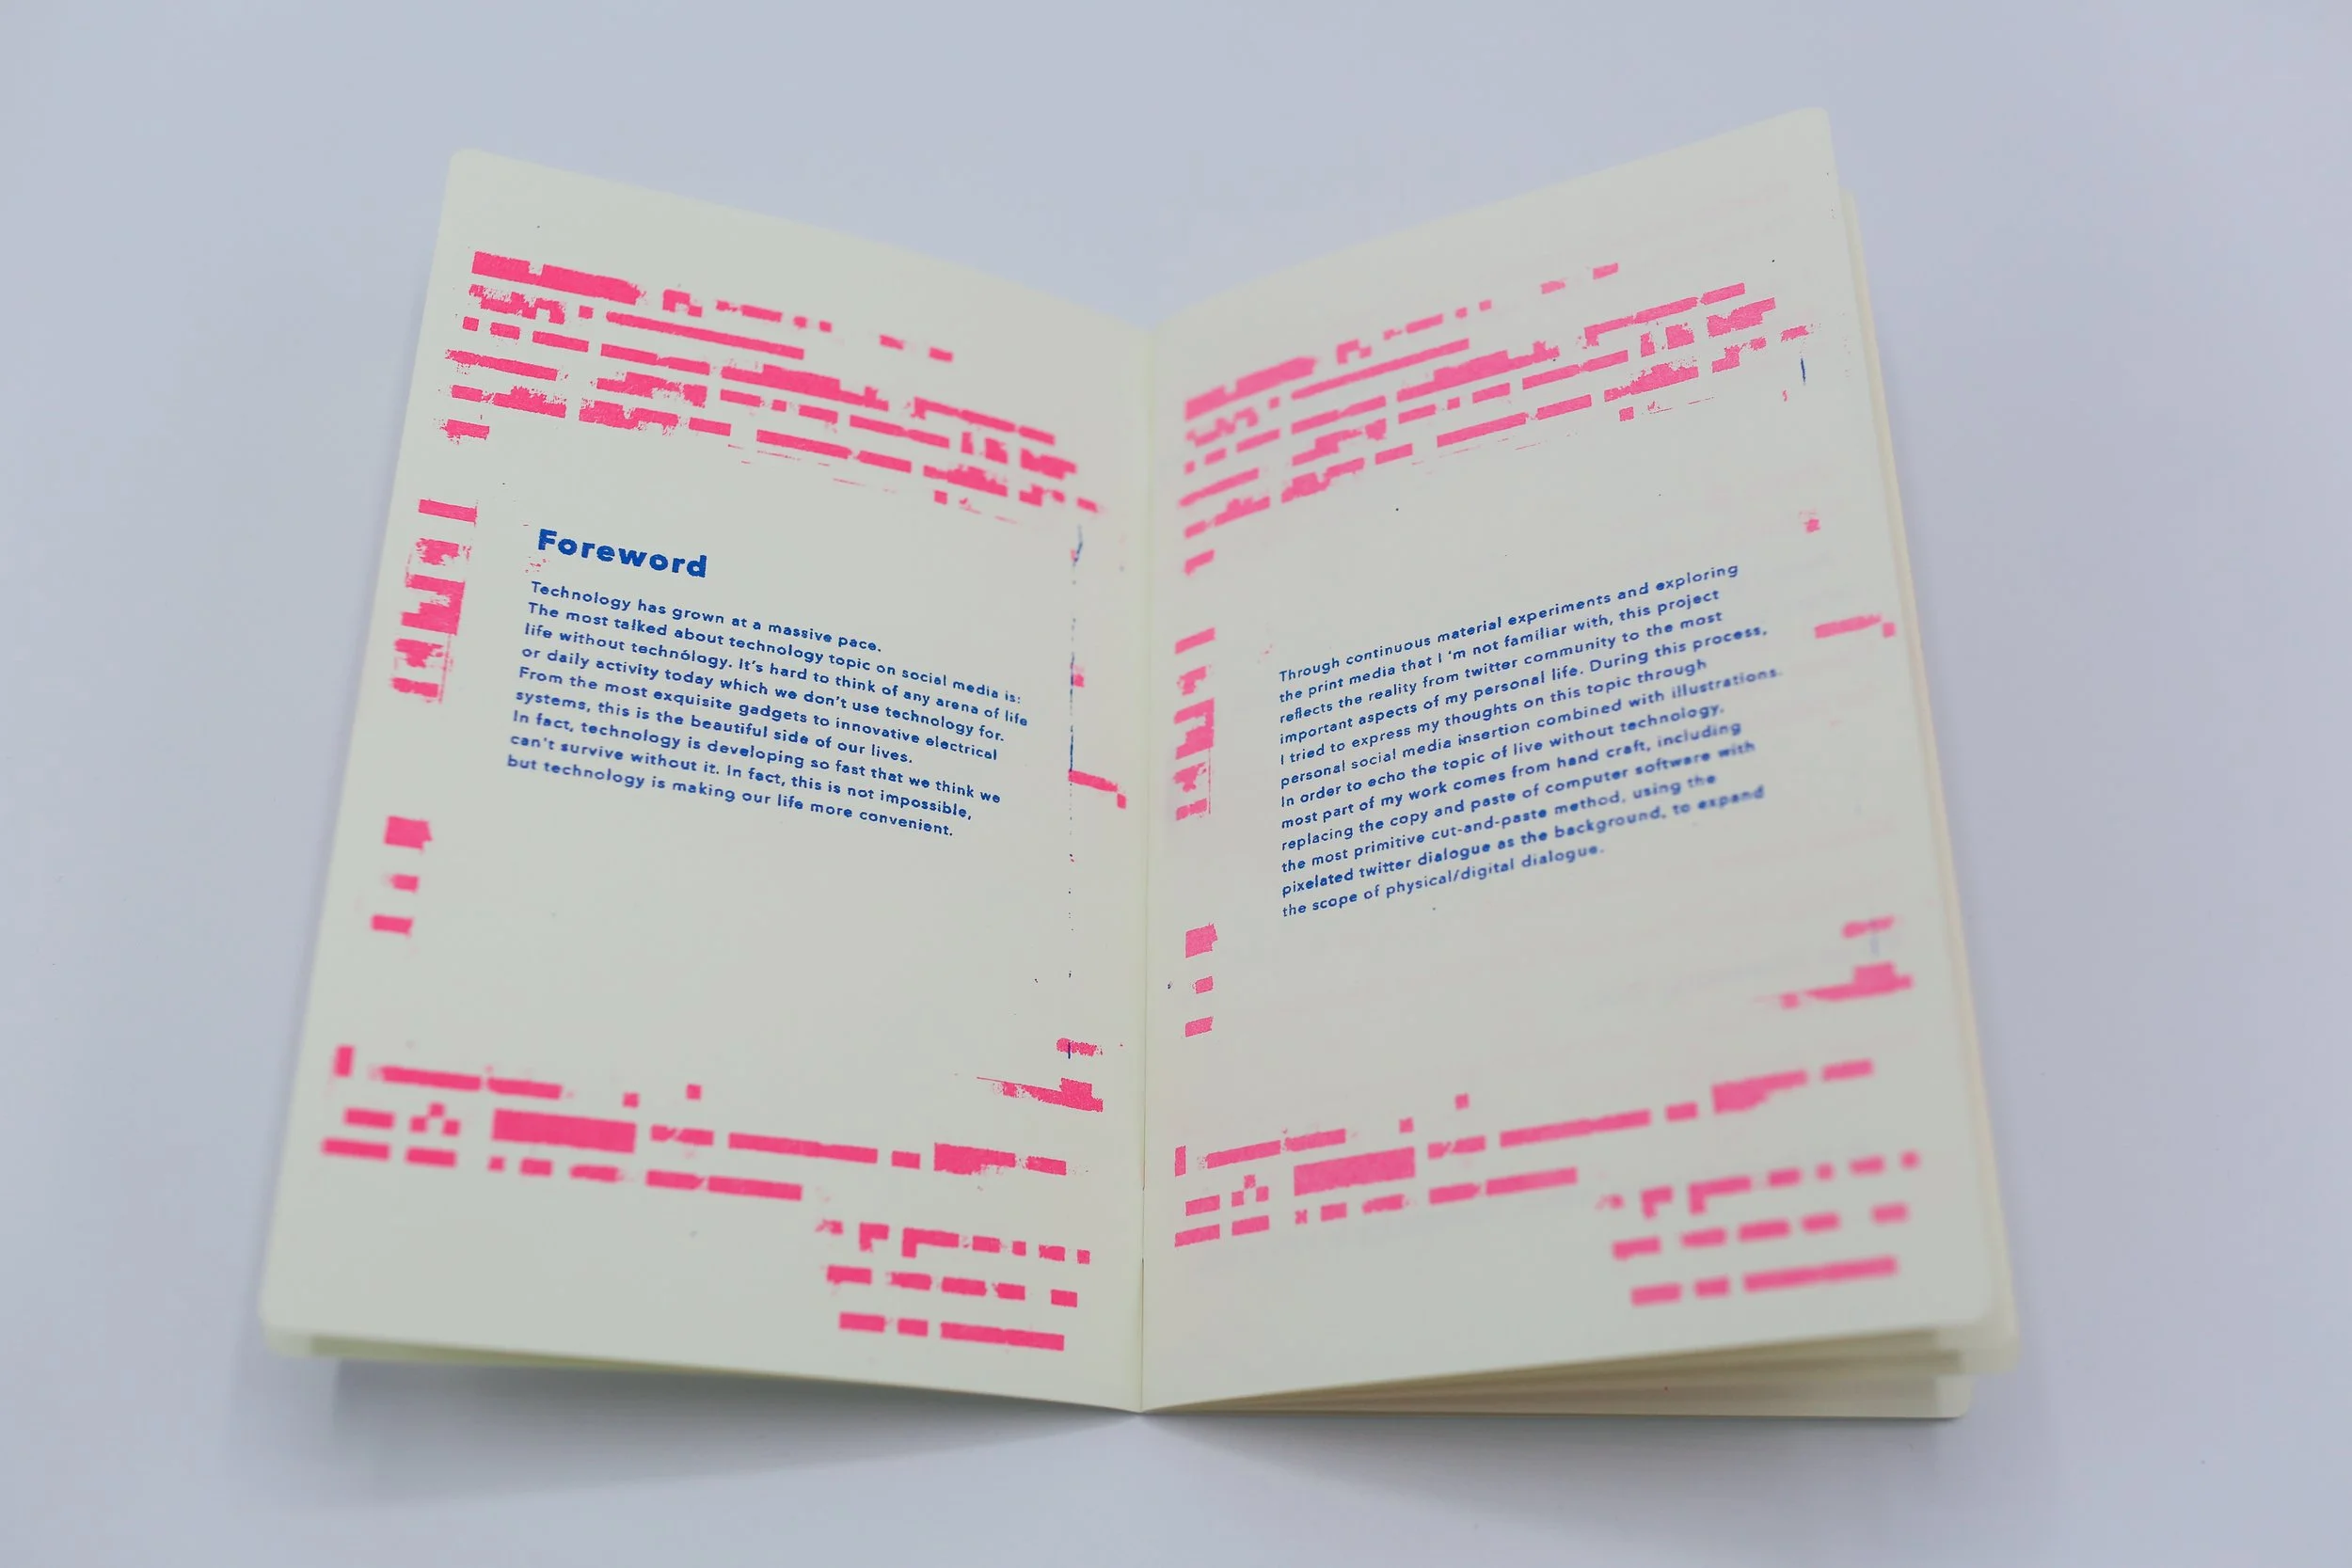 Foreword
Technology has grown at a massive pace.
The most talked about technology topic on social media is:
life without technólogy. It's hard to think of any arena of life
or daily activity today which we don't use technology for.
From the most exquisite gadgets to innovative electrical
systems, this is the beautiful side of our lives.
In fact, technology is developing so fast that we think we
can't survive without it. In fact, this is not impossible,
but technology is making our life more convenient.
Through continuous material experiments and exploring
the print media that I 'm not familiar with, this project
reflects the reality from twitter community to the most
important aspects of my personal life. During this process,
I tried to express my thoughts on this topic through
personal social media insertion combined with illustrations.
In order to echo the topic of live without technology,
most part of my work comes from hand craft, including
replacing the copy and paste of computer software with
the most primitive cut-and-paste method, using the
pixelated twitter dialogue as the background, to expand
the scope of physical/digital dialogue.